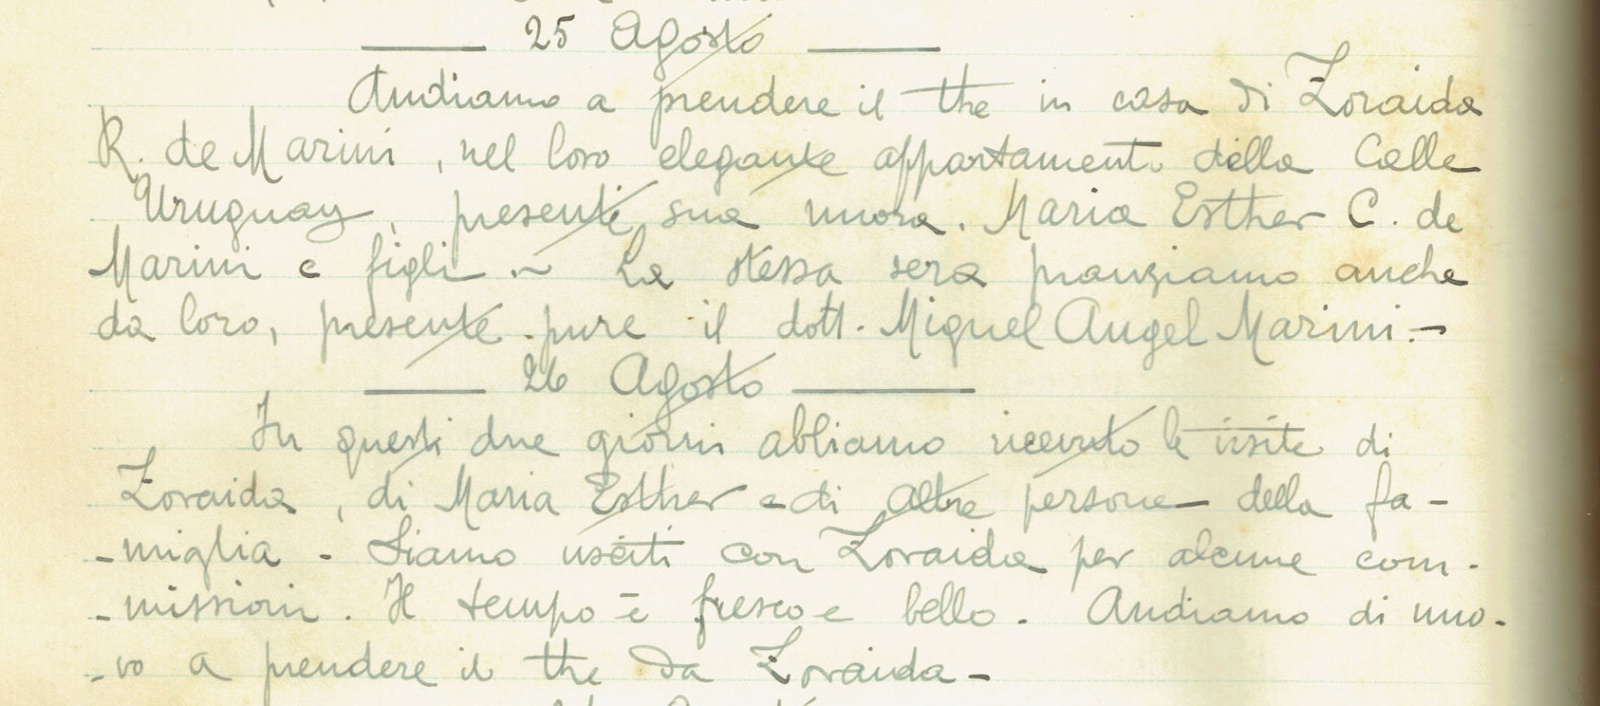 25 Agosto
Andiamo a prendere il the in casa di Zoraida
R. de Marini, nel loro elegante appartamento della Calle
Uruguay, presente sua nuora, Maria Esther C. de
Marini e figli. ~ La stessa sera pranziamo anche
da loro, presente pure il dott. Miguel Angel Marini. -
26 Agosto
In questi due giorni abbiamo ricevuto le visite di
Zoraida, di Maria Esther e di altre persone della fa-
-miglia - Siamo usciti con Zoraida per alcune com-
-missioni. Il tempo è fresco e bello. Andiamo di nuo-
-vo a prendere il the da Zoraida -